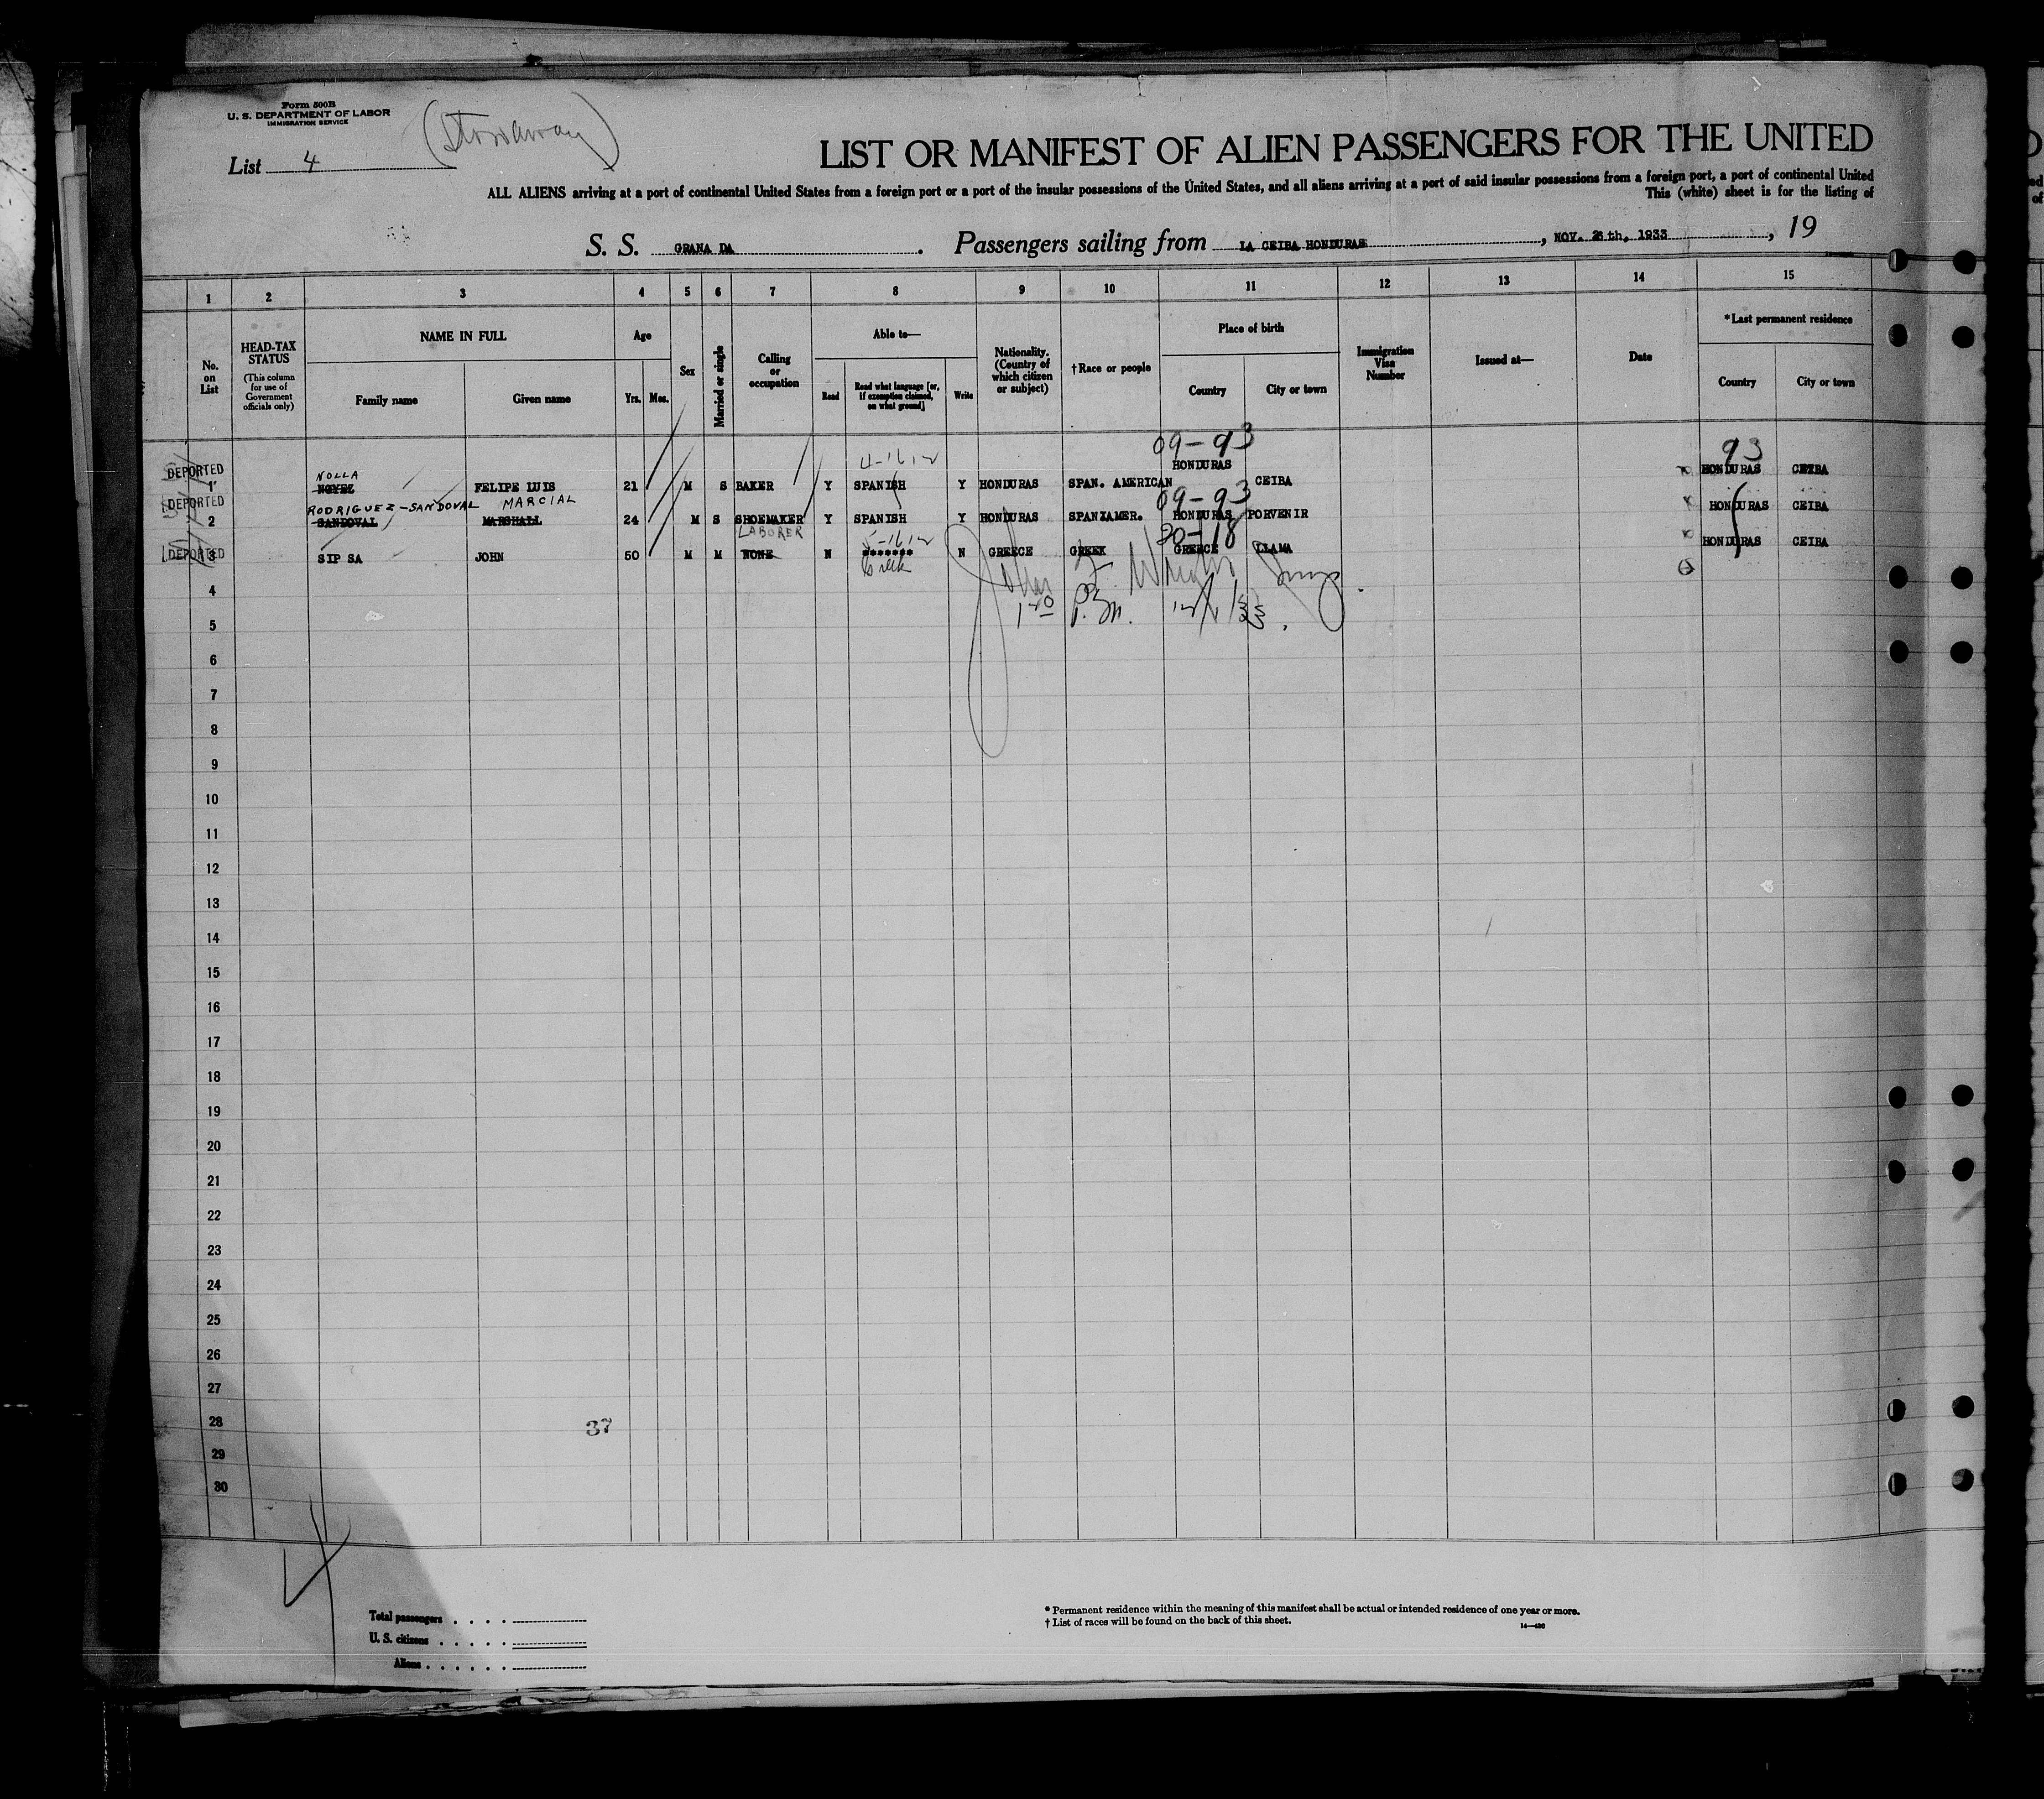 Form 500B
U. S. DEPARTMENT OF LABOR
IMMIGRATION SERVICE
(Stowaway)
List 4
LIST OR MANIFEST OF ALIEN PASSENGERS FOR THE UNITED
ALL ALIENS arriving at a port of continental United States from a foreign port or a port of the insular possessions of the United States, and all aliens arriving at a port of said insular possessions from a foreign port, a port of continental United
This (white) sheet is for the listing of
S. S. GRANA DA . Passengers sailing from LA CEIBA HONDURAS , NOV. 26th, 1933 , 19
1 2 3 4 5 6 7 8 9 10 11 12 13 14 15
No. on List
HEAD-TAX STATUS (This column for use of Government officials only)
NAME IN FULL
Family name Given name
Age
Yrs. Mos.
Sex
Married or single
Calling or occupation
Able to—
Read Read what language [or, if exemption claimed, on what ground] Write
Nationality. (Country of which citizen or subject)
†Race or people
Place of birth
Country City or town
Immigration Visa Number
Issued at—
Date
*Last permanent residence
Country City or town
09-93 93
NOLLA 4-1612
DEPORTED 1 NOYEZ FELIPE LUIS 21 M S BAKER Y SPANISH Y HONDURAS SPAN. AMERICAN HONDURAS CEIBA HONDURAS CEIBA
RODRIGUEZ-SANDOVAL MARCIAL 09-93
DEPORTED 2 SANDOVAL MARSHALL 24 M S SHOEMAKER Y SPANISH Y HONDURAS SPANIAMER. HONDURAS PORVENIR HONDURAS CEIBA
LABORER 5-1612 20-18
DEPORTED 3 SIP SA JOHN 50 M M NONE N ******* N GREECE GREEK GREECE LLAMA HONDURAS CEIBA
Greek
John Wright
P.M.
4
5
6
7
8
9
10
11
12
13
14
15
16
17
18
19
20
21
22
23
24
25
26
27
28
37
29
30
Total passengers . . . .
U. S. citizens . . . . .
Aliens . . . . . .
* Permanent residence within the meaning of this manifest shall be actual or intended residence of one year or more.
† List of races will be found on the back of this sheet.
14—430